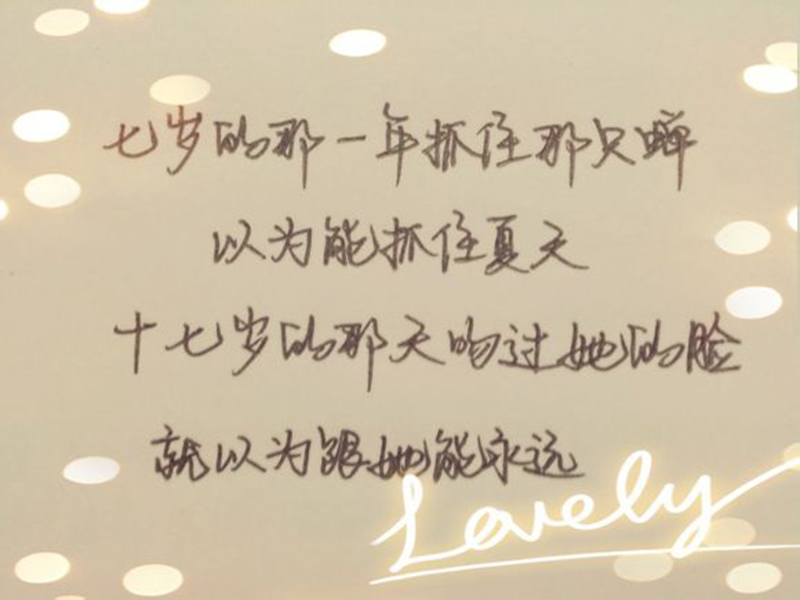 七岁的那一年抓住那只蝉
以为能抓住夏天
十七岁的那天吻过她的脸
就以为跟她能永远
Lovely